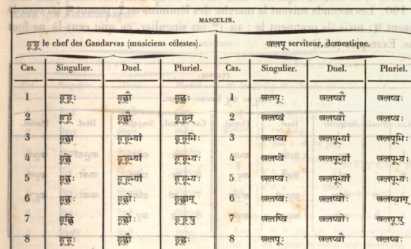 MASCULIN.
हूहू le chef des Gandarvas (musiciens célestes). खलपू serviteur, domestique.
Cas. Singulier. Duel. Pluriel. Cas. Singulier. Duel. Pluriel.
1 हूहूः हूह्वौ हूह्वः 1 खलपूः खलप्वौ खलप्वः
2 हूहूं हूह्वौ हूहून् 2 खलप्वं खलप्वौ खलप्वः
3 हूह्वा हूहूभ्यां हूहूभिः 3 खलप्वा खलपूभ्यां खलपूभिः
4 हूह्वे हूहूभ्यां हूहूभ्यः 4 खलप्वे खलपूभ्यां खलपूभ्यः
5 हूह्वः हूहूभ्यां हूहूभ्यः 5 खलप्वः खलपूभ्यां खलपूभ्यः
6 हूह्वः हूह्वोः हूह्वाम् 6 खलप्वः खलप्वोः खलप्वाम्
7 हूह्वि हूह्वोः हूहूषु 7 खलप्वि खलप्वोः खलपूषु
8 हूहूः हूह्वौ हूह्वः 8 खलपूः खलप्वौ खलप्वः